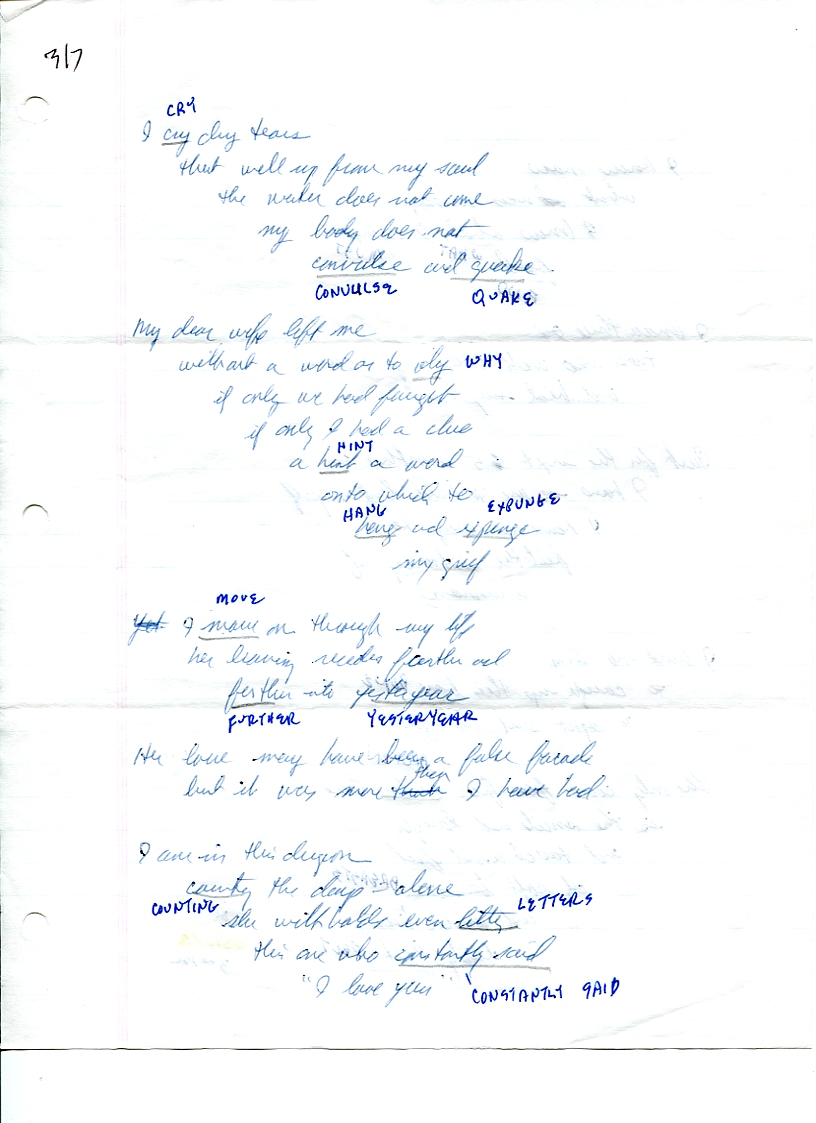 3/7
CRY
I cry dry tears
that well up from my soul
the water does not come
my body does not
convulse and quake.
CONVULSE QUAKE
My dear wife left me
without a word as to why WHY
if only we had fought
if only I had a clue
HINT
a hint a word
onto which to
HANG EXPUNGE
hang and expunge
my grief
MOVE
Yet I move on through my life
her leaving recedes further and
further into yesteryear
FURTHER YESTERYEAR
Her love may have been a false facade
then
but it was more I have had
I am in this dungeon
counting the days alone
COUNTING LETTERS
she withholds even letters
this one who constantly said
"I love you" CONSTANTLY SAID